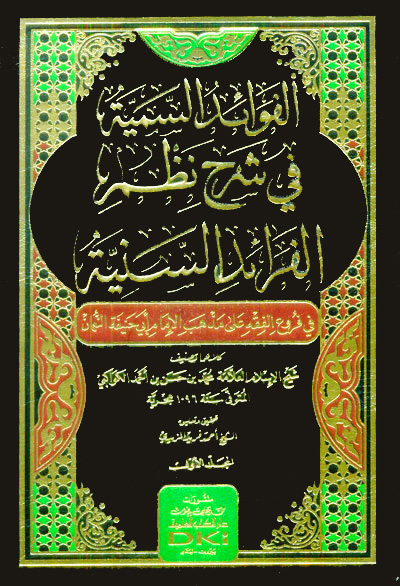 الفوائد السمية
في شرح نظم
الفرائد السنية
في فروع الفقه على مذهب الإمام أبي حنيفة النعمان
كلاهما تصنيف
شيخ الإسلام العلامة محمد بن حسن بن أحمد الكواكبي
المتوفى سنة ١٠٩٦ هجرية
تحقيق وتعليق
الشيخ أحمد فريد المزيدي
المجلد الأول
منشورات
محمد علي بيضون
دار الكتب العلمية
DKi
بيروت - لبنان